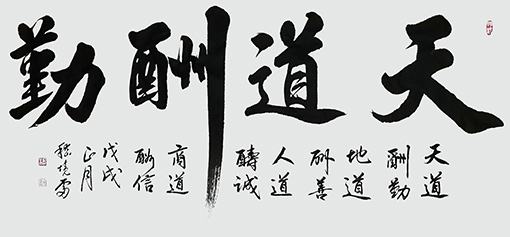 天道酬勤
天道
酬勤
地道
酬善
人道
醻誠
商道
酬信
戊戌
正月